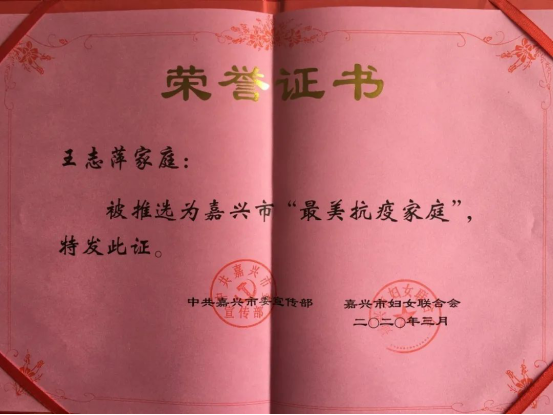 荣誉证书
王志萍家庭：
被推选为嘉兴市“最美抗疫家庭”，
特发此证。
中共嘉兴市委宣传部 嘉兴市妇女联合会
二〇二〇年三月
中共嘉兴市
宣传部
妇女